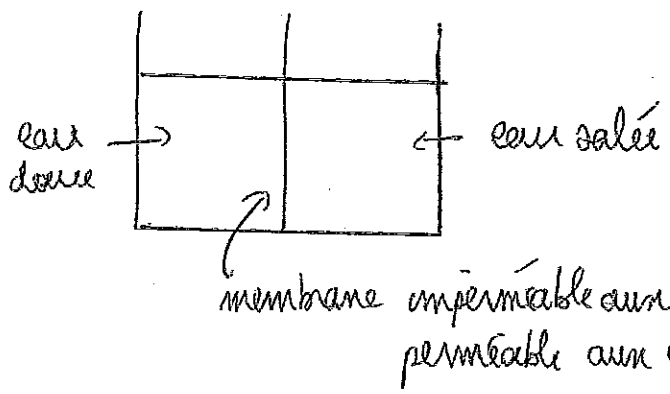 eau
douce
eau salée
membrane imperméable aux
perméable aux